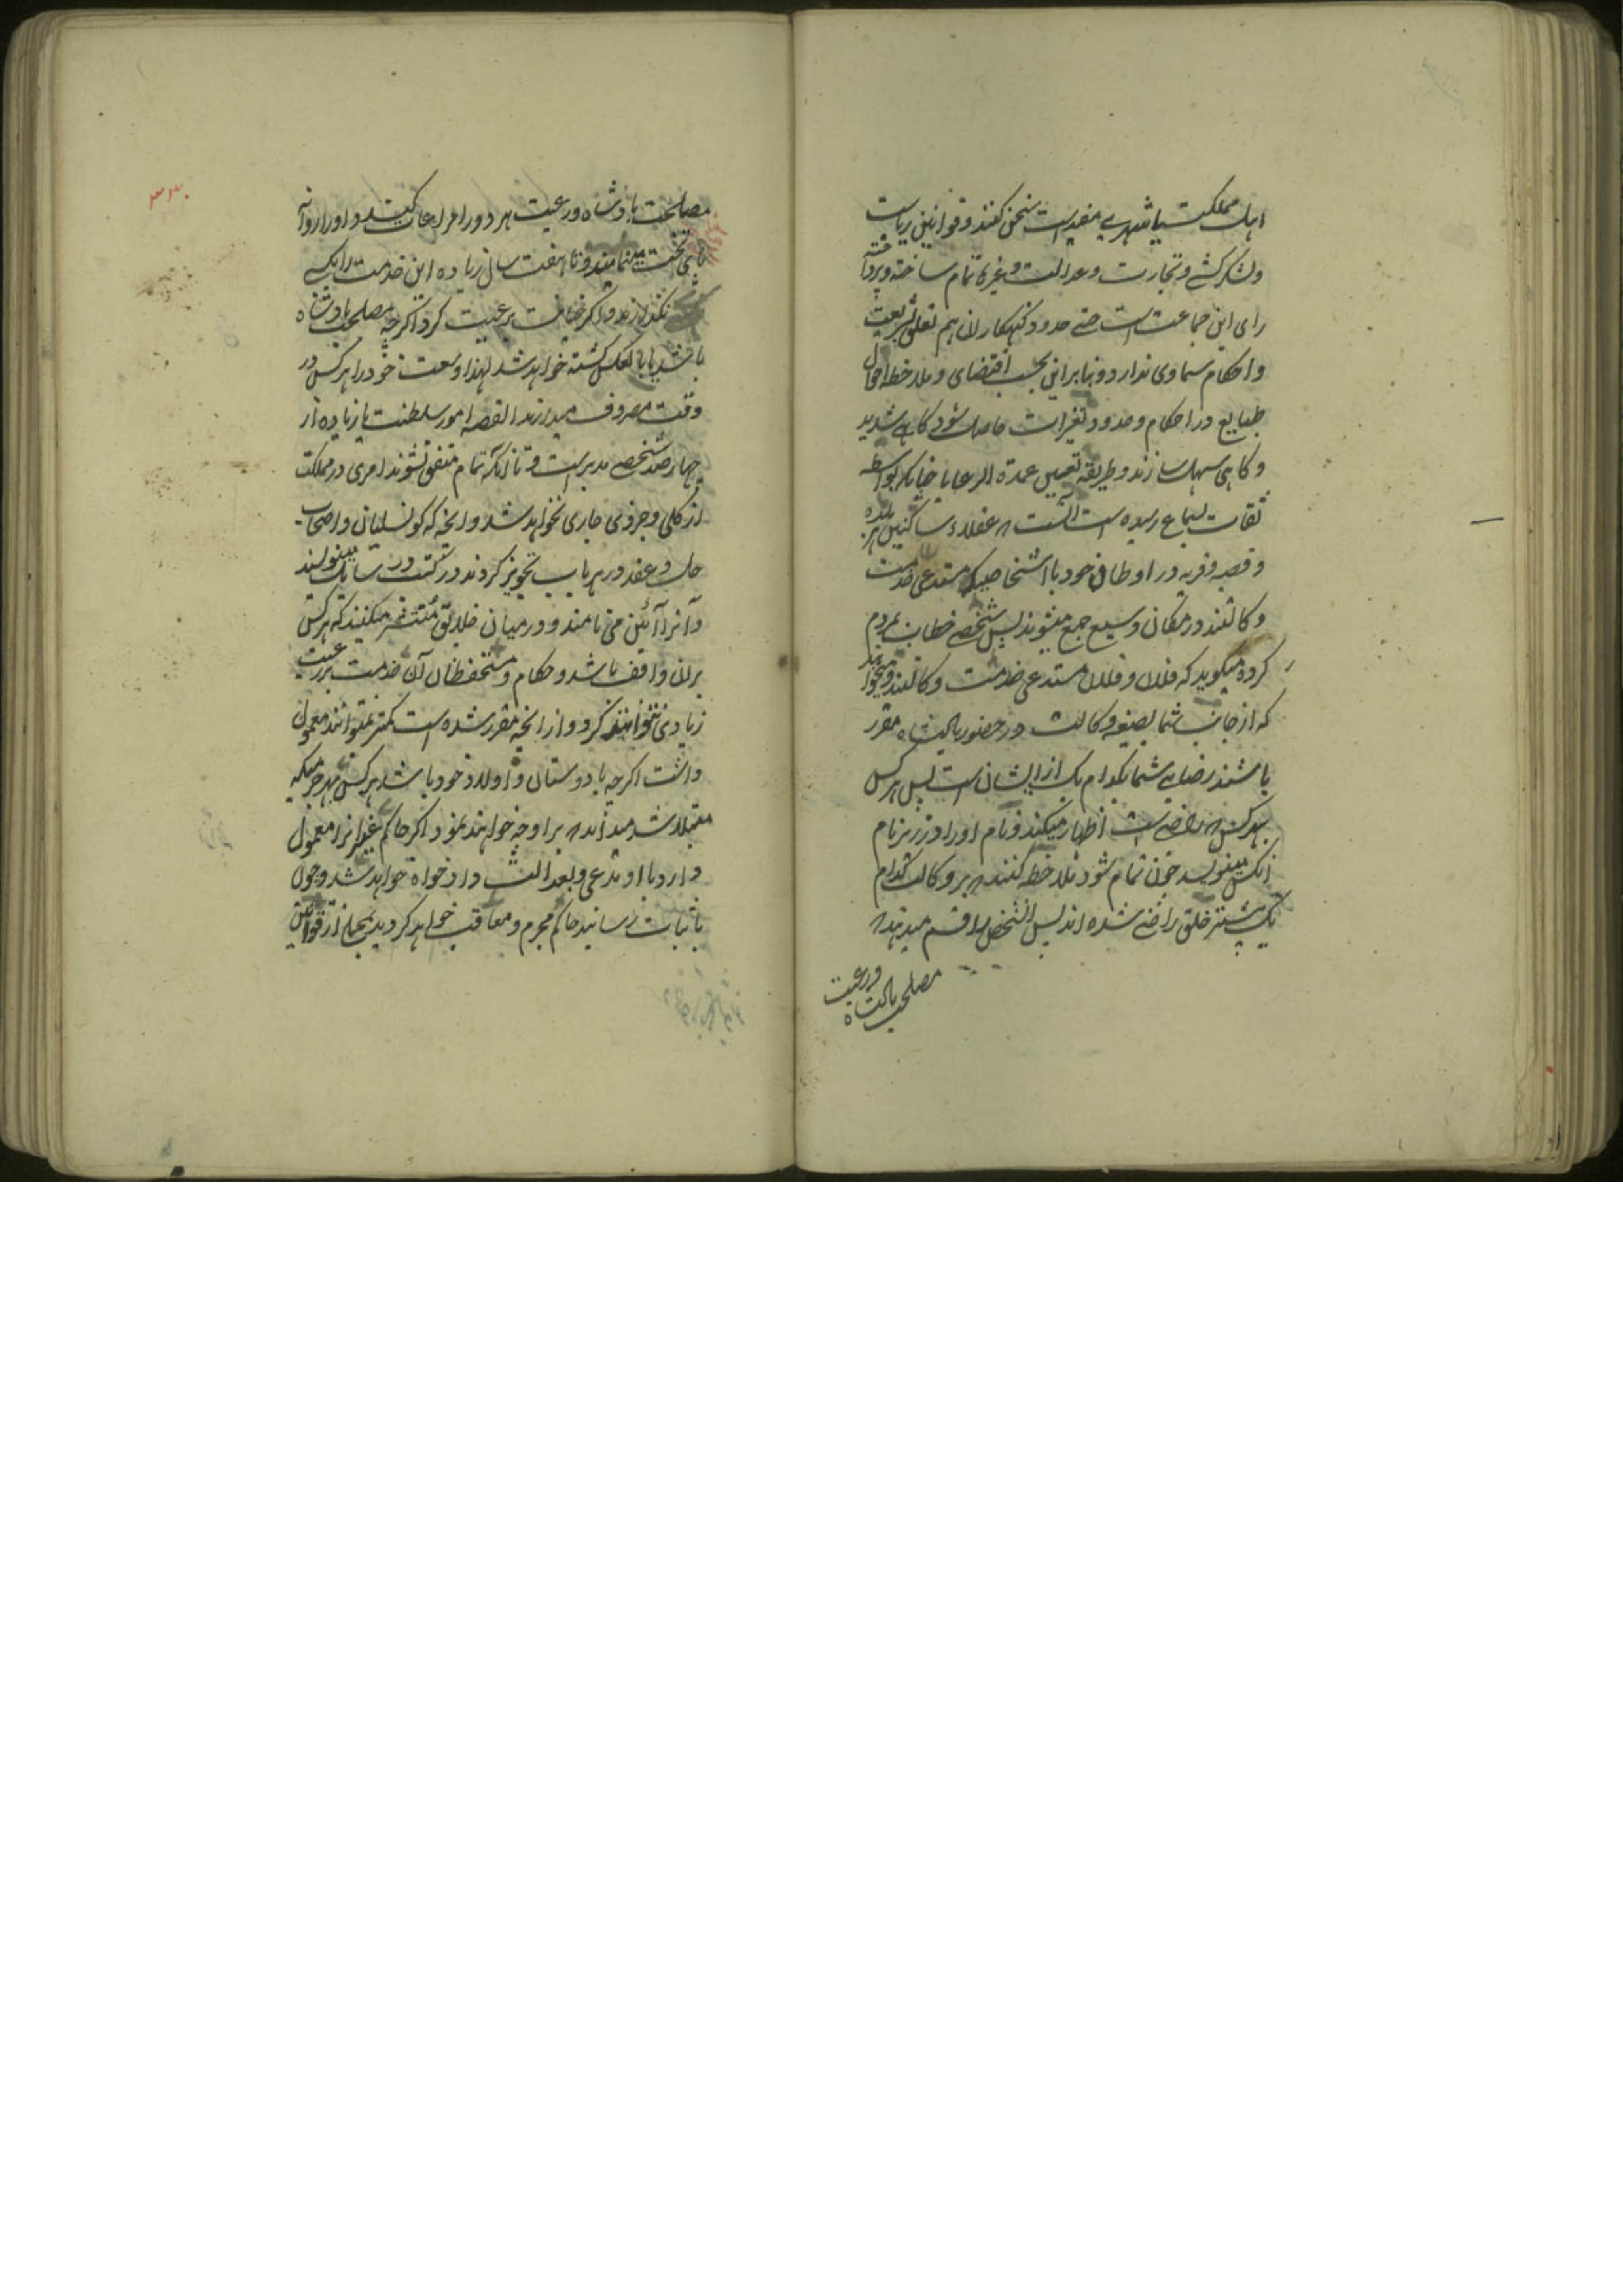 اهل مملکت یا شهری مفید است سخن کنند و قوانین ریاست
و لشکرکشی و تجارت و عدالت و غیره تمام ساخته و پرداخته
رای این جماعت است حتی حدود گنهکاران هم تعلق بشریعت
و احکام سماوی ندارد و بنابراین بحسب اقتضای و ملاحظه احوال
طبایع در احکام و حدود تغیرات حاصل شود گاهی شدید
و گاهی سهل سازند و طریقه تعیین عمدة الرعایا چنانکه بواسطه
ثقات بسماع رسیده است آنست که عقلاء ساکنین هر بلده
و قصبه و قریه در اوطان خود با اشخاصیکه مستدعی خدمت
وکالتند در مکان وسیع جمع میشوند پس شخصی خطاب بمردم
کرده میگوید که فلان و فلان مستدعی خدمت وکالتند و میخواهند
که از جانب شما بصیغه وکالت در حضور پادشاه مقرر
باشند رضای شما بکدام یک از ایشان است پس هر کس
بهر کس که راضی است اظهار میکند و نام او را در زیر نام
آنکس مینویسد چون تمام شود ملاحظه کنند که بر وکالت کدام
یک بیشتر خلق راضی شده اند پس آن شخص را قسم میدهند که
مصلحت پادشاه و رعیت
۳۳۰
مصلحت پادشاه و رعیت هر دو را مراعات کند و او را روانه
پای تخت مینمایند و تا هفت سال زیاده این خدمت را بیکی
نگذارند و اگر خیانت برعیت کرد اگرچه مصلحت پادشاه
باشد یا بالعکس کشته خواهد شد لهذا وسعت خود را هر کس در
وقت مصروف میدارند القصه امور سلطنت با زیاده از
چهارصد شخص مدبر است و تا آنکه تمام متفق نشوند امری در مملکت
از کلی و جزوی جاری نخواهد شد و آنچه که کونسلیان و اصحاب
حل و عقد در هر باب تجویز کردند در کتب و رسایل مینویسند
و آنرا آئین می نامند و در میان خلایق منتشر میکنند که هر کس
بران واقف باشد و حکام و مستحفظان آن خدمت بر رعیت
زیادی نتوانند کرد و از آنچه مقرر شده است کمتر نتوانند معمول
داشت اگرچه با دوستان و اولاد خود باشد هر کس بهر جرمیکه
مبتلا شد میداند که براو چه خواهند نمود اگر حاکم غیر انرا معمول
دارد با او مدعی و بعدالت دادخواه خواهد شد و چون
باثبات رسانید حاکم مجرم و معاقب خواهد گردید بجمله از قوانین